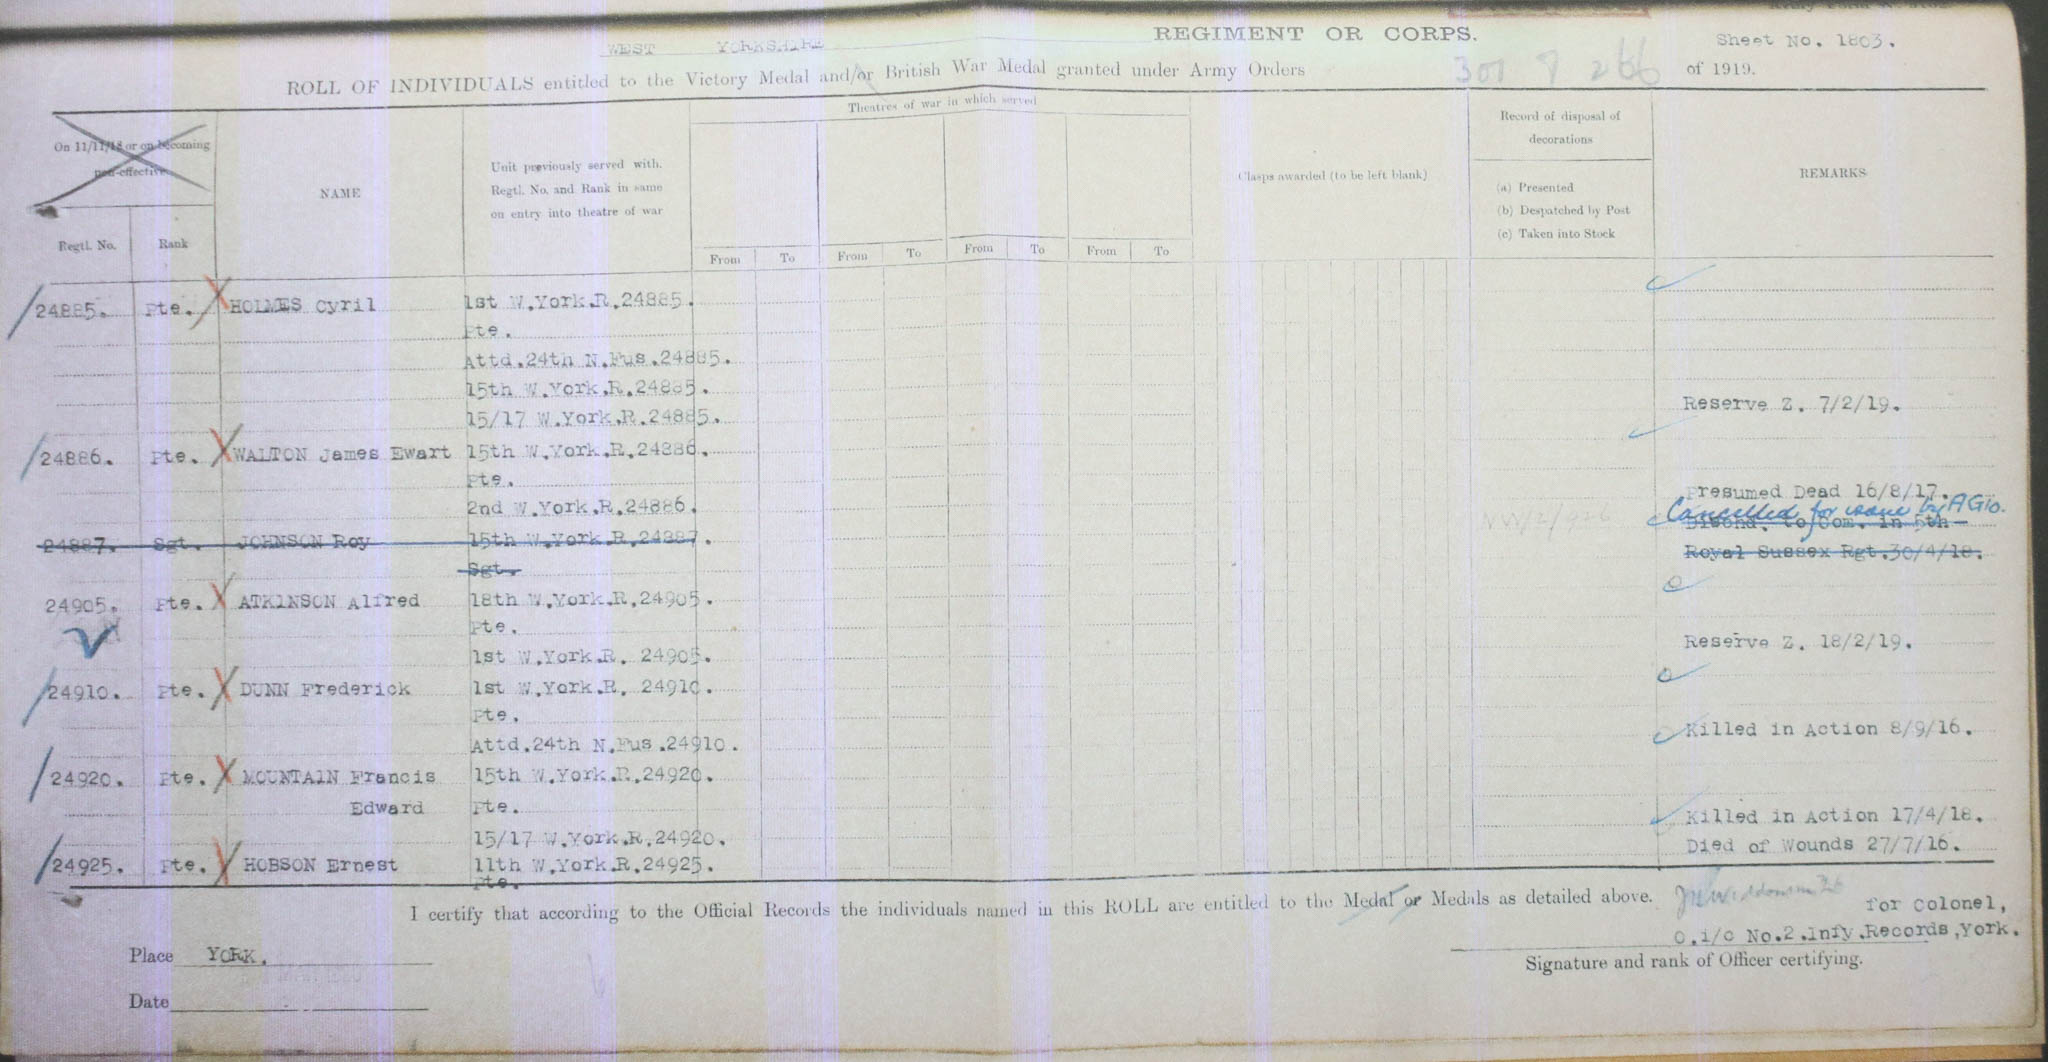 WEST YORKSHIRE REGIMENT OR CORPS.
Sheet No. 1803.
ROLL OF INDIVIDUALS entitled to the Victory Medal and/or British War Medal granted under Army Orders 301 & 266 of 1919.
On 11/11/18 or on becoming
non-effective
Regtl. No.
Rank
NAME
Unit previously served with.
Regtl. No. and Rank in same
on entry into theatre of war
Theatres of war in which served
From To From To From To From To
Clasps awarded (to be left blank)
Record of disposal of
decorations
(a) Presented
(b) Despatched by Post
(c) Taken into Stock
REMARKS
24885. Pte. HOLMES Cyril 1st W.York.R.24885.
Pte.
Attd.24th N.Fus.24885.
15th W.York.R.24885.
15/17 W.York.R.24885. Reserve Z. 7/2/19.
24886. Pte. WALTON James Ewart 15th W.York.R.24886.
Pte.
2nd W.York.R.24886. Presumed Dead 16/8/17.
Cancelled for issue by AG10.
24887. Sgt. JOHNSON Roy 15th W.York.R.24887. Dischd. to Com. in 5th
Sgt. Royal Sussex Rgt.30/4/18.
24905. Pte. ATKINSON Alfred 18th W.York.R.24905.
Pte.
1st W.York.R. 24905. Reserve Z. 18/2/19.
24910. Pte. DUNN Frederick 1st W.York.R. 24910.
Pte.
Attd.24th N.Fus.24910. Killed in Action 8/9/16.
24920. Pte. MOUNTAIN Francis 15th W.York.R.24920.
Edward Pte.
15/17 W.York.R.24920. Killed in Action 17/4/18.
24925. Pte. HOBSON Ernest 11th W.York.R.24925. Died of Wounds 27/7/16.
Pte.
I certify that according to the Official Records the individuals named in this ROLL are entitled to the Medal or Medals as detailed above.
for Colonel,
O.i/c No.2.Infy.Records,York.
Place YORK.
Signature and rank of Officer certifying.
Date